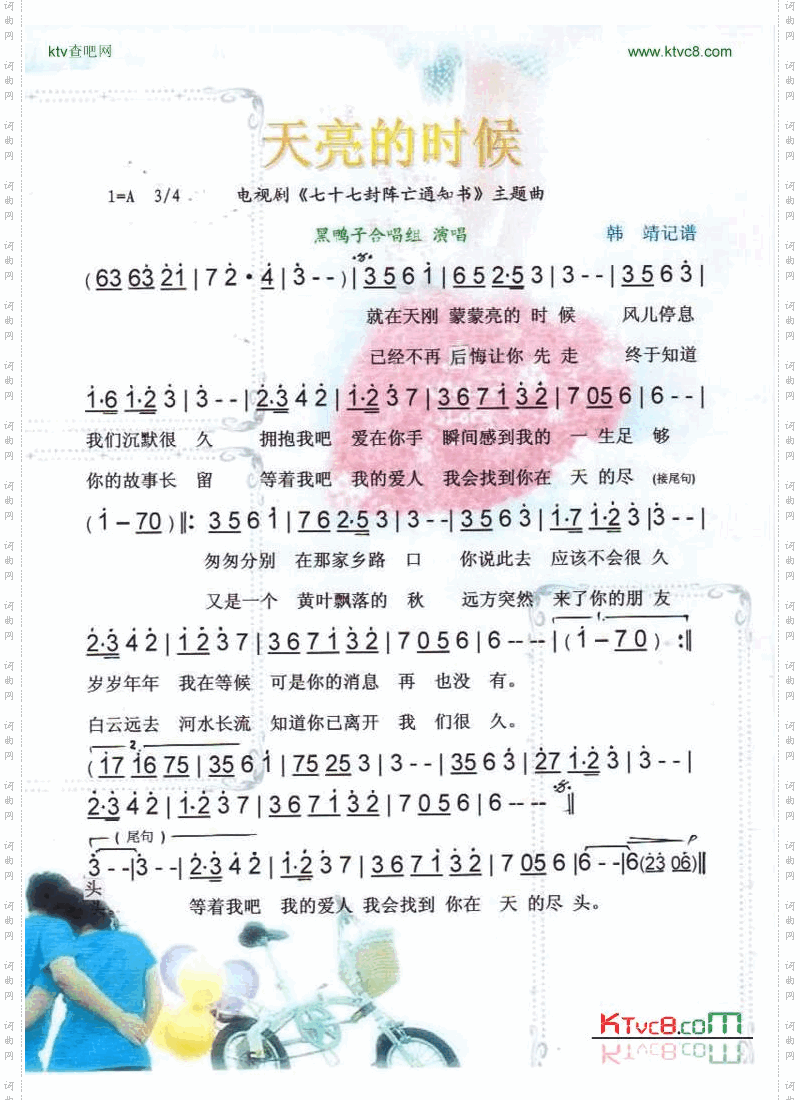 ktv查吧网 www.ktvc8.com
天亮的时候
1=A 3/4 电视剧《七十七封阵亡通知书》主题曲
黑鸭子合唱组 演唱 韩 靖记谱
(63 63 21|7 2·4|3--)|3561|652·53|3--|3563|
就在天刚 蒙蒙亮的 时 候 风儿停息
已经不再 后悔让你 先 走 终于知道
1·6 1·2 3|3--|2·3 4 2|1·2 3 7|3 6 7 1 3 2|7 05 6|6--|
我们沉默很 久 拥抱我吧 爱在你手 瞬间感到我的 一 生足 够
你的故事长 留 等着我吧 我的爱人 我会找到你在 天 的尽 (接尾句)
(1-70)‖: 3561|762·53|3--|3563|1·7 1·2 3|3--|
匆匆分别 在那家乡路 口 你说此去 应该不会很 久
又是一个 黄叶飘落的 秋 远方突然 来了你的朋 友
2·3 4 2|1 2 3 7|3 6 7 1 3 2|7 0 5 6|6----|(1-70) :‖
岁岁年年 我在等候 可是你的消息 再 也没 有。
白云远去 河水长流 知道你已离开 我 们很 久。
2.
(17 16 75|35 6 1|75 25 3|3--|35 6 3|27 1·2 3|3--|
2·3 4 2|1·2 3 7|3 6 7 1 3 2|7 0 5 6|6----‖
(尾句) P
3--|3--|2·3 4 2|1·2 3 7|3 6 7 1 3 2|7 05 6|6--|6(23 06)‖
头
头。 等着我吧 我的爱人 我会找到 你在 天 的尽 头。
KTvc8.com
词曲网